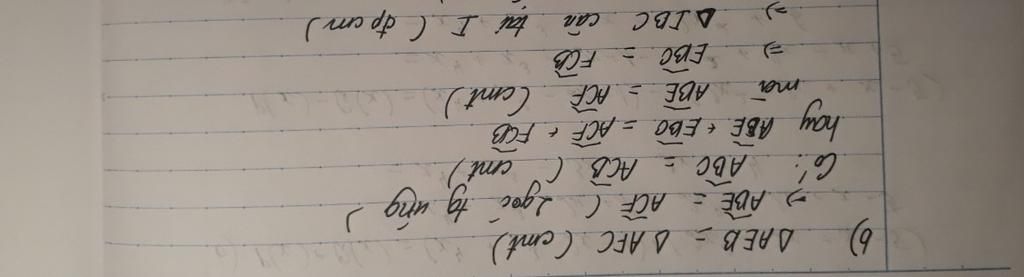 b) ΔAEB = ΔAFC (cmt)
⇒ ABE = ACF ( 2góc tg ứng )
Có: ABC = ACB ( cmt )
hay ABE + EBC = ACF + FCB
mà ABE = ACF (cmt)
⇒ EBC = FCB
⇒ ΔIBC cân tại I ( đpcm )